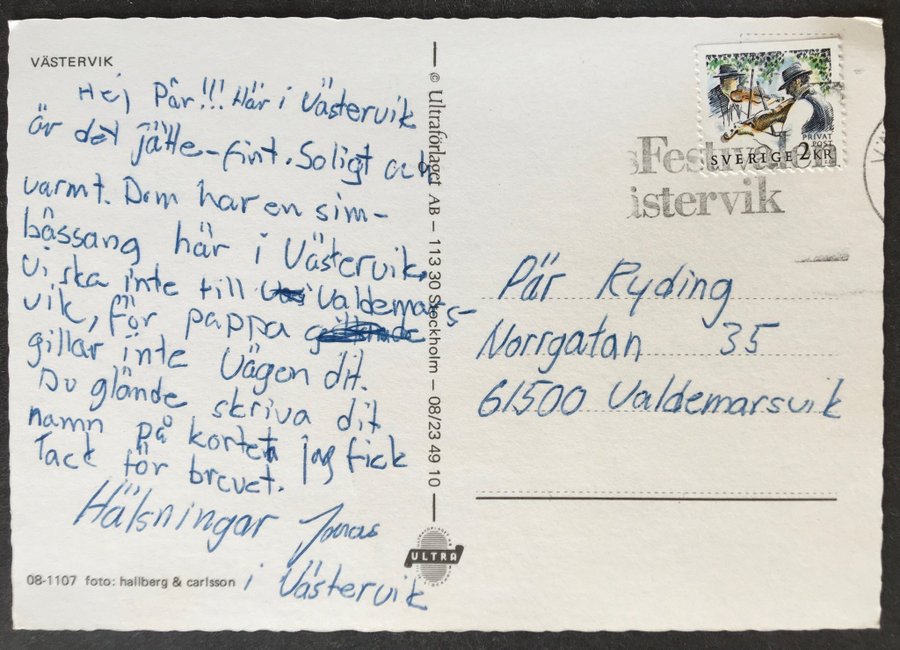 VÄSTERVIK
Hej Pär!!! Här i Västervik
är det jätte-fint. Soligt och
varmt. Dom har en sim-
bässang här i Västervik.
Vi ska inte till Valdemars-
vik, för pappa
gillar inte Vägen dit.
Du glömde skriva dit
namn på kortet jag fick
Tack för brevet.
Hälsningar Jonas
i Västervik
08-1107 foto: hallberg & carlsson
© Ultraförlaget AB – 113 30 Stockholm – 08/23 49 10
ULTRA
PRIVAT
POST
SVERIGE 2 KR
sFestivalen
ästervik
Pär Ryding
Norrgatan 35
61500 Valdemarsvik